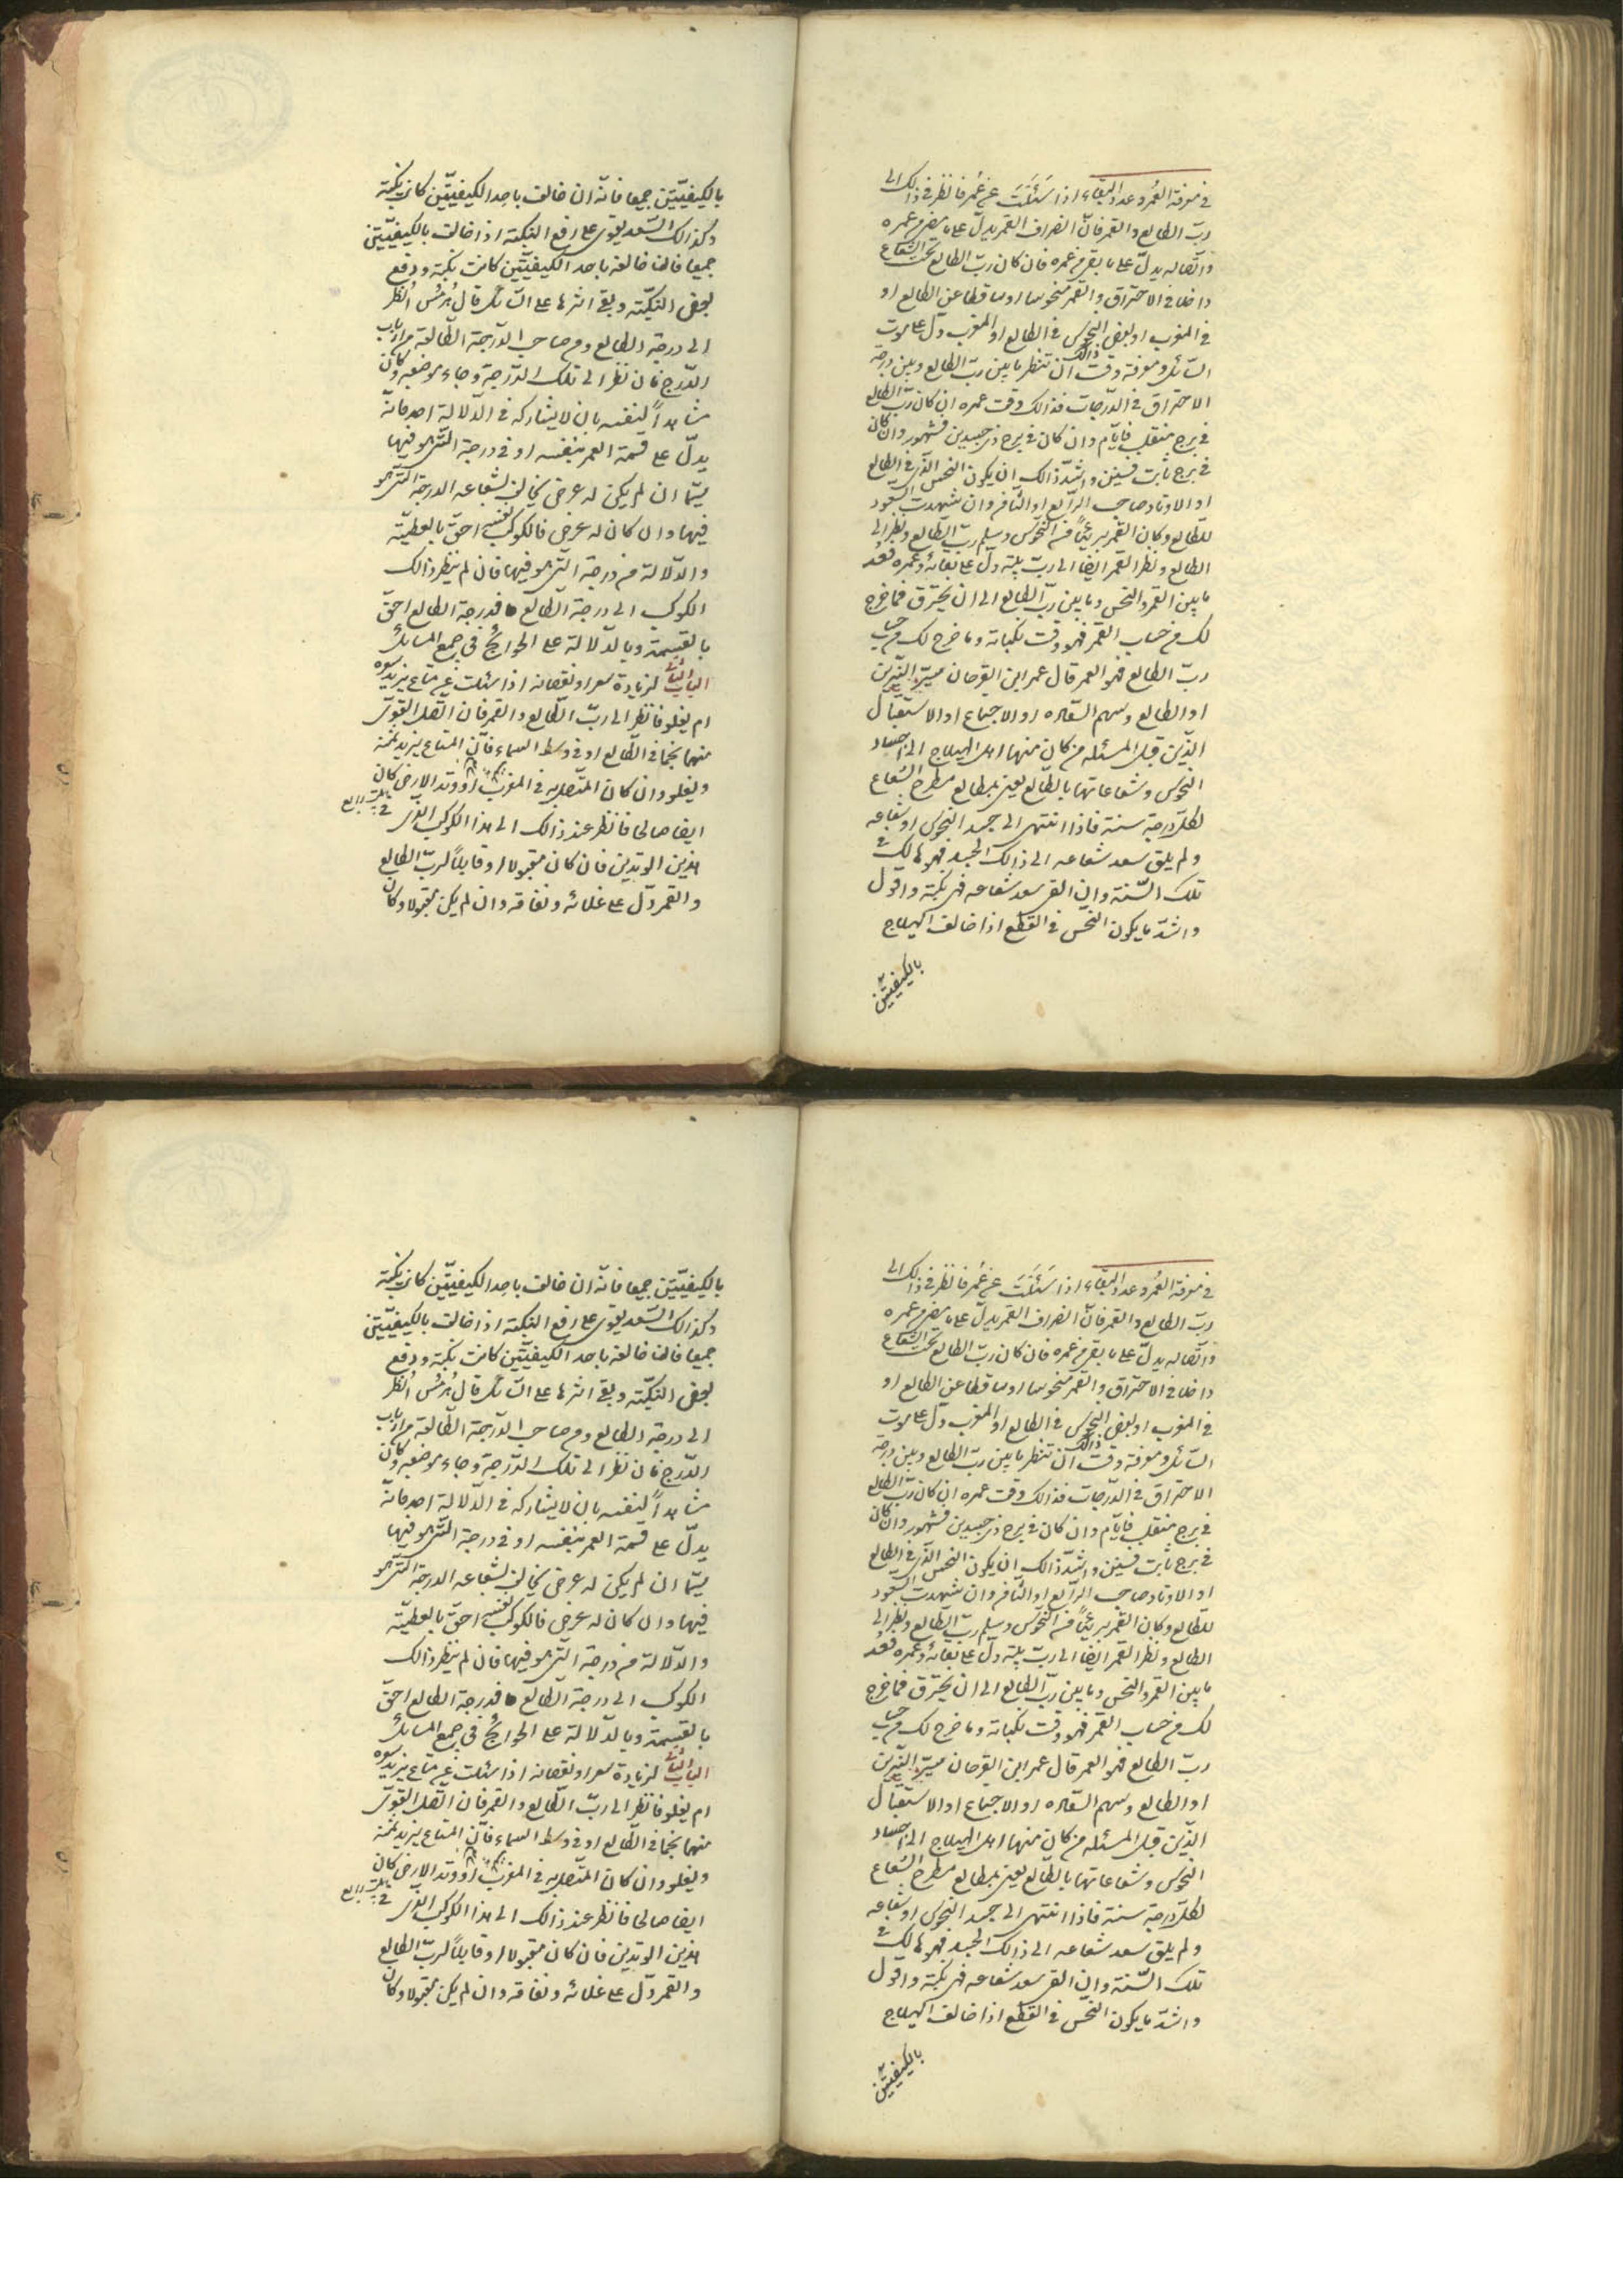 في معرفة العُمُر وعدد البقاء اذا سَئَلَتَ عن عُمر فانظر في ذالك الى
ربّ الطالع والقمر فانّ انصراف القمر يدلّ على ما مضى من عمره
واتّصاله يدلّ على ما بقى من عمره فان كان ربّ الطالع تحت الشعاع
داخلا في الاحتراق والقمر منحوسا او ساقطا عن الطالع او
في المغرب او بعض النحوس في الطالع او المغرب دلّ على موت
السائل ومعرفة وقت ذالك ان تنظر ما بين ربّ الطالع وبين درجة
الاحتراق في الدّرجات فذالك وقت عمره ان كان ربّ الطالع
في برج منقلب فايّام وان كان في برج ذى جسدين فشهور وان كان
في برج ثابت فسنين واشدّ ذالك ان يكون النحس الّذى في الطالع
او الاوتاد صاحب الرّابع او الثامن وان شهدت السعود
للطالع وكان القمر بريئاً من النّحوس وسلم ربّ الطالع ونظر الى
الطالع ونظر القمر ايضا الى ربّ بيته دلّ على بقائه وعمره فعُد
ما بين القمر والنحس وما بين ربّ الطالع الى ان يحترق فما خرج
لك من حساب القمر فهو وقت نكباته وما خرج لك من حساب
ربّ الطالع فهو العمر قال عمر ابن الفرّخان مسيّر النّيّرين
او الطالع وسهم السّعاده او الاجتماع او الاستقبال
الّذين قبل المسئله من كان منها اهل الهيلاج الى اجساد
النّحوس وشعاعاتها بالطالع يعنى بمطالع مطرح الشعاع
لكلّ درجة سنة فاذا انتهى الى جسد النحوس او شعاعه
ولم يلق سعد شعاعه الى ذالك الجسد فهو هالك في
تلك السّنة وان القى سعد شعاعه فهى نكبة واقول
واشدّ ما يكون النّحس في القطع اذا خالف الهيلاج
بالكيفيّتين
بالكيفيّتين جميعا فانّه ان خالف باحد الكيفيّتين كانت نكبة
وكذالك السّعد يقوى على رفع النكبة اذا خالف بالكيفيّتين
جميعا فان خالف باحد الكيفيّتين كانت نكبة ودفع
بعض النكبة وبقى اثرها على السّائل قال هُرمُس اُنظر
الى درجة الطالع ومن صاحب الدّرجة الطّالعة من ارباب
الدّرج فان نظر الى تلك الدّرجة وجاء موضعه وكان
شاهداً لنفسه بان لا يشاركه في الدّلالة احد فانّه
يدلّ على قسمة العمر بنفسه او في درجة الّتى هو فيها
سيّما ان لم يكن له عرض يخالف لشعاعه الدرجة الّتى هو
فيها وان كان له عرض فالكوكب نفسه احقّ بالعطيّة
والدّلالة من درجة الّتى هو فيها فان لم ينظر ذالك
الكوكب الى درجة الطّالع فدرجة الطالع احقّ
بالقسمة وبالدّلالة على الحوائج في جمع المسائل
الباب الثانى لزيادة سعر او نقصانه اذا سئلت عن متاع يزيد سعره
ام يغلو فانظر الى ربّ الطّالع والقمر فان اتّصل القوىّ
منهما نجما في الطّالع او في وسط السماء فانّ المتاع يزيد ثمنه
ويغلو وان كان المتّصل به في المغرب او وتد الارض كان
ايضا صالحا فانظر عند ذالك الى هذا الكوكب الّذى في
هذين الوتدين فان كان مقبولا او قابلاً لربّ الطالع
والقمر دلّ على غلائه ونفاقه وان لم يكن مقبولا وكان
في معرفة العُمُر وعدد البقاء اذا سَئَلَتَ عن عُمر فانظر في ذالك الى
ربّ الطالع والقمر فانّ انصراف القمر يدلّ على ما مضى من عمره
واتّصاله يدلّ على ما بقى من عمره فان كان ربّ الطالع تحت الشعاع
داخلا في الاحتراق والقمر منحوسا او ساقطا عن الطالع او
في المغرب او بعض النحوس في الطالع او المغرب دلّ على موت
السائل ومعرفة وقت ذالك ان تنظر ما بين ربّ الطالع وبين درجة
الاحتراق في الدّرجات فذالك وقت عمره ان كان ربّ الطالع
في برج منقلب فايّام وان كان في برج ذى جسدين فشهور وان كان
في برج ثابت فسنين واشدّ ذالك ان يكون النحس الّذى في الطالع
او الاوتاد صاحب الرّابع او الثامن وان شهدت السعود
للطالع وكان القمر بريئاً من النّحوس وسلم ربّ الطالع ونظر الى
الطالع ونظر القمر ايضا الى ربّ بيته دلّ على بقائه وعمره فعُد
ما بين القمر والنحس وما بين ربّ الطالع الى ان يحترق فما خرج
لك من حساب القمر فهو وقت نكباته وما خرج لك من حساب
ربّ الطالع فهو العمر قال عمر ابن الفرّخان مسيّر النّيّرين
او الطالع وسهم السّعاده او الاجتماع او الاستقبال
الّذين قبل المسئله من كان منها اهل الهيلاج الى اجساد
النّحوس وشعاعاتها بالطالع يعنى بمطالع مطرح الشعاع
لكلّ درجة سنة فاذا انتهى الى جسد النحوس او شعاعه
ولم يلق سعد شعاعه الى ذالك الجسد فهو هالك في
تلك السّنة وان القى سعد شعاعه فهى نكبة واقول
واشدّ ما يكون النّحس في القطع اذا خالف الهيلاج
بالكيفيّتين
بالكيفيّتين جميعا فانّه ان خالف باحد الكيفيّتين كانت نكبة
وكذالك السّعد يقوى على رفع النكبة اذا خالف بالكيفيّتين
جميعا فان خالف باحد الكيفيّتين كانت نكبة ودفع
بعض النكبة وبقى اثرها على السّائل قال هُرمُس اُنظر
الى درجة الطالع ومن صاحب الدّرجة الطّالعة من ارباب
الدّرج فان نظر الى تلك الدّرجة وجاء موضعه وكان
شاهداً لنفسه بان لا يشاركه في الدّلالة احد فانّه
يدلّ على قسمة العمر بنفسه او في درجة الّتى هو فيها
سيّما ان لم يكن له عرض يخالف لشعاعه الدرجة الّتى هو
فيها وان كان له عرض فالكوكب نفسه احقّ بالعطيّة
والدّلالة من درجة الّتى هو فيها فان لم ينظر ذالك
الكوكب الى درجة الطّالع فدرجة الطالع احقّ
بالقسمة وبالدّلالة على الحوائج في جمع المسائل
الباب الثانى لزيادة سعر او نقصانه اذا سئلت عن متاع يزيد سعره
ام يغلو فانظر الى ربّ الطّالع والقمر فان اتّصل القوىّ
منهما نجما في الطّالع او في وسط السماء فانّ المتاع يزيد ثمنه
ويغلو وان كان المتّصل به في المغرب او وتد الارض كان
ايضا صالحا فانظر عند ذالك الى هذا الكوكب الّذى في
هذين الوتدين فان كان مقبولا او قابلاً لربّ الطالع
والقمر دلّ على غلائه ونفاقه وان لم يكن مقبولا وكان